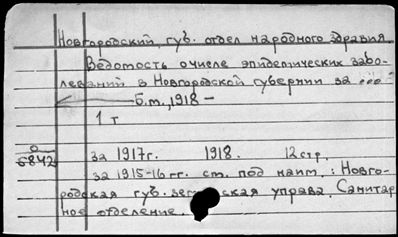 Новгородский, губ. отдел народного здравия.
Ведомость о числе эпидемических забо-
леваний в Новгородской губернии за ...
Б.м., 1918 -
1 т
за 1917 г. 1918. 12 стр.
О
6842
за 1915-16 гг. ст. под наим.: Новго-
родская губ. зем ская управа. Санитар
ное отделение.